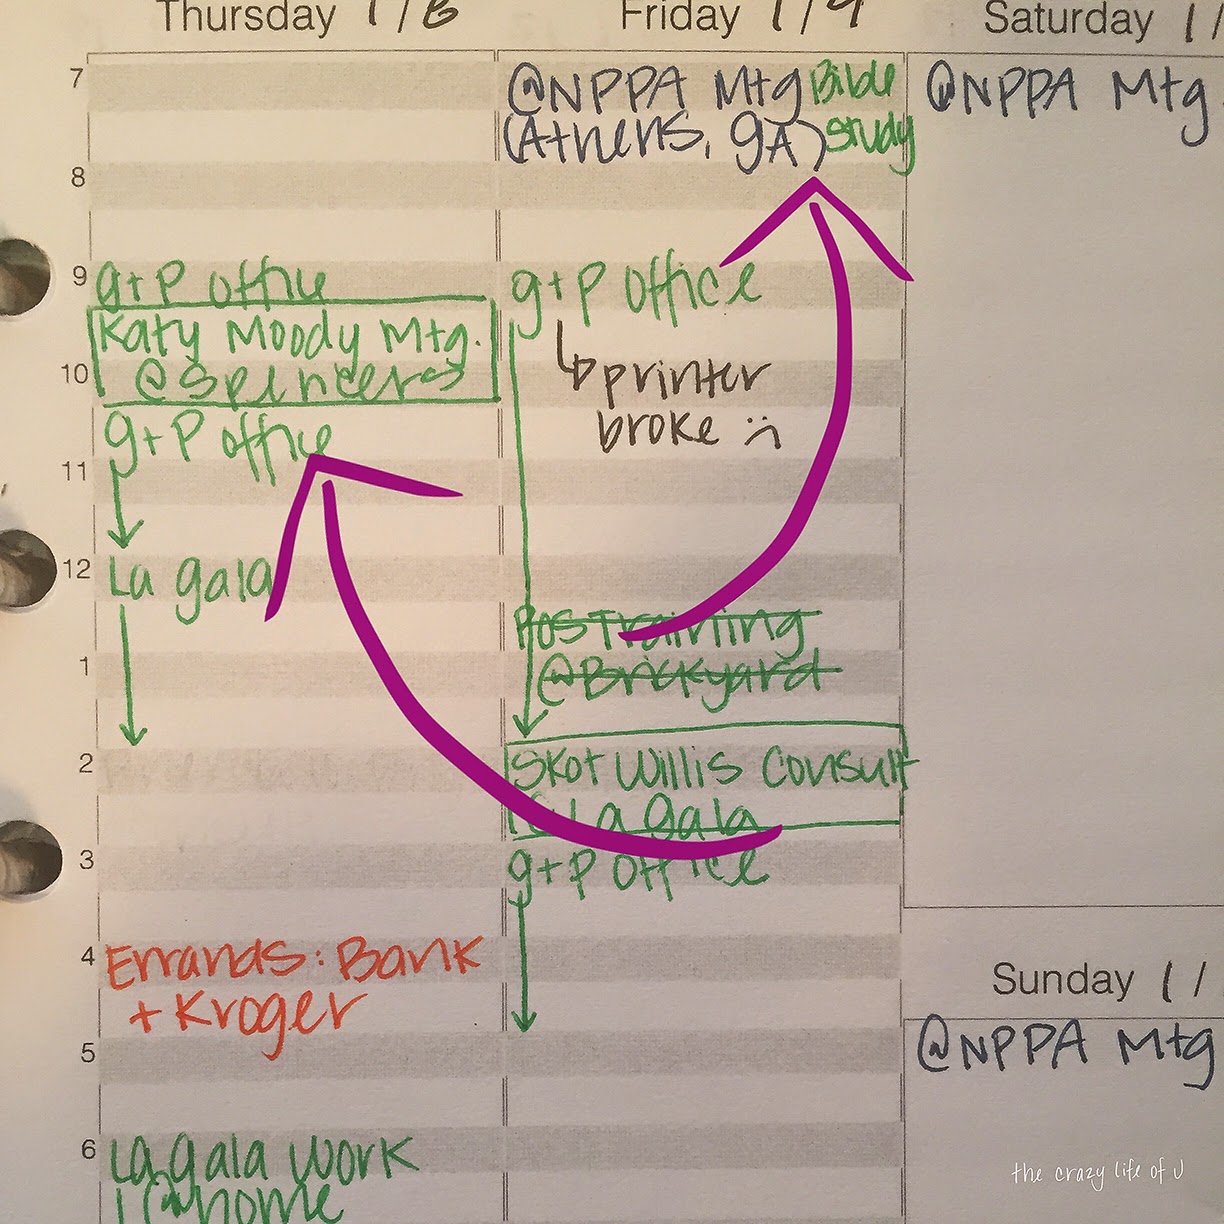 Thursday 1/8
7
8
9
g+P office
Katy Moody Mtg.
10
@Spencers
g+P office
11
12
La gala
1
2
3
4
Errands: Bank
+ Kroger
5
6
La gala work
@home
Friday 1/9
@NPPA Mtg
(Athens, gA)
Bible
study
g+P office
printer
broke :(
Pos Training
@Brickyard
Skot Willis Consult
@ La gala
g+P office
Saturday 1/
@NPPA Mtg
Sunday 1/
@NPPA Mtg
the crazy life of J